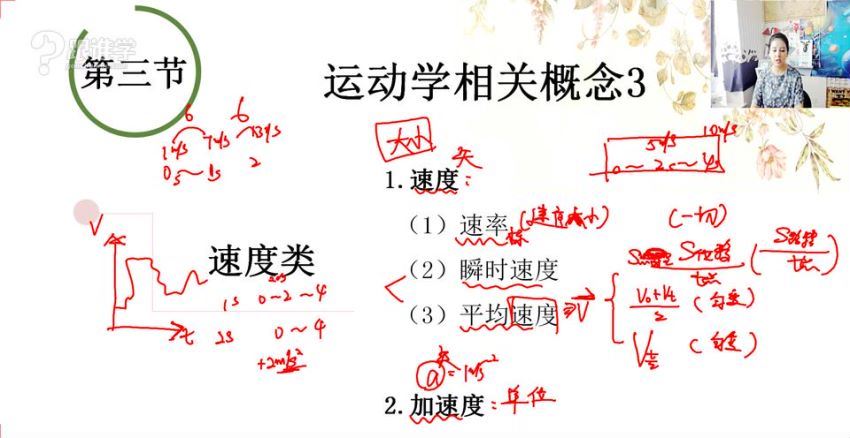 跟谁学
第三节
运动学相关概念3
6 6
1m/s 7m/s 13m/s
0s~1s 2
大小
矢
5m/s 10m/s
0~2s~4s
1.速度:
(1)速率 标(速度大小)
(一切)
(2)瞬时速度
S位移/t总 (S路程/t总)
(3)平均速度⇒V
V₀+Vt/2 (匀变)
V t/2 (匀变)
速度类
V
t
1s 0~2~4
2s 0~4
+2m/s²
矢
a=1m/s²
2.加速度:单位